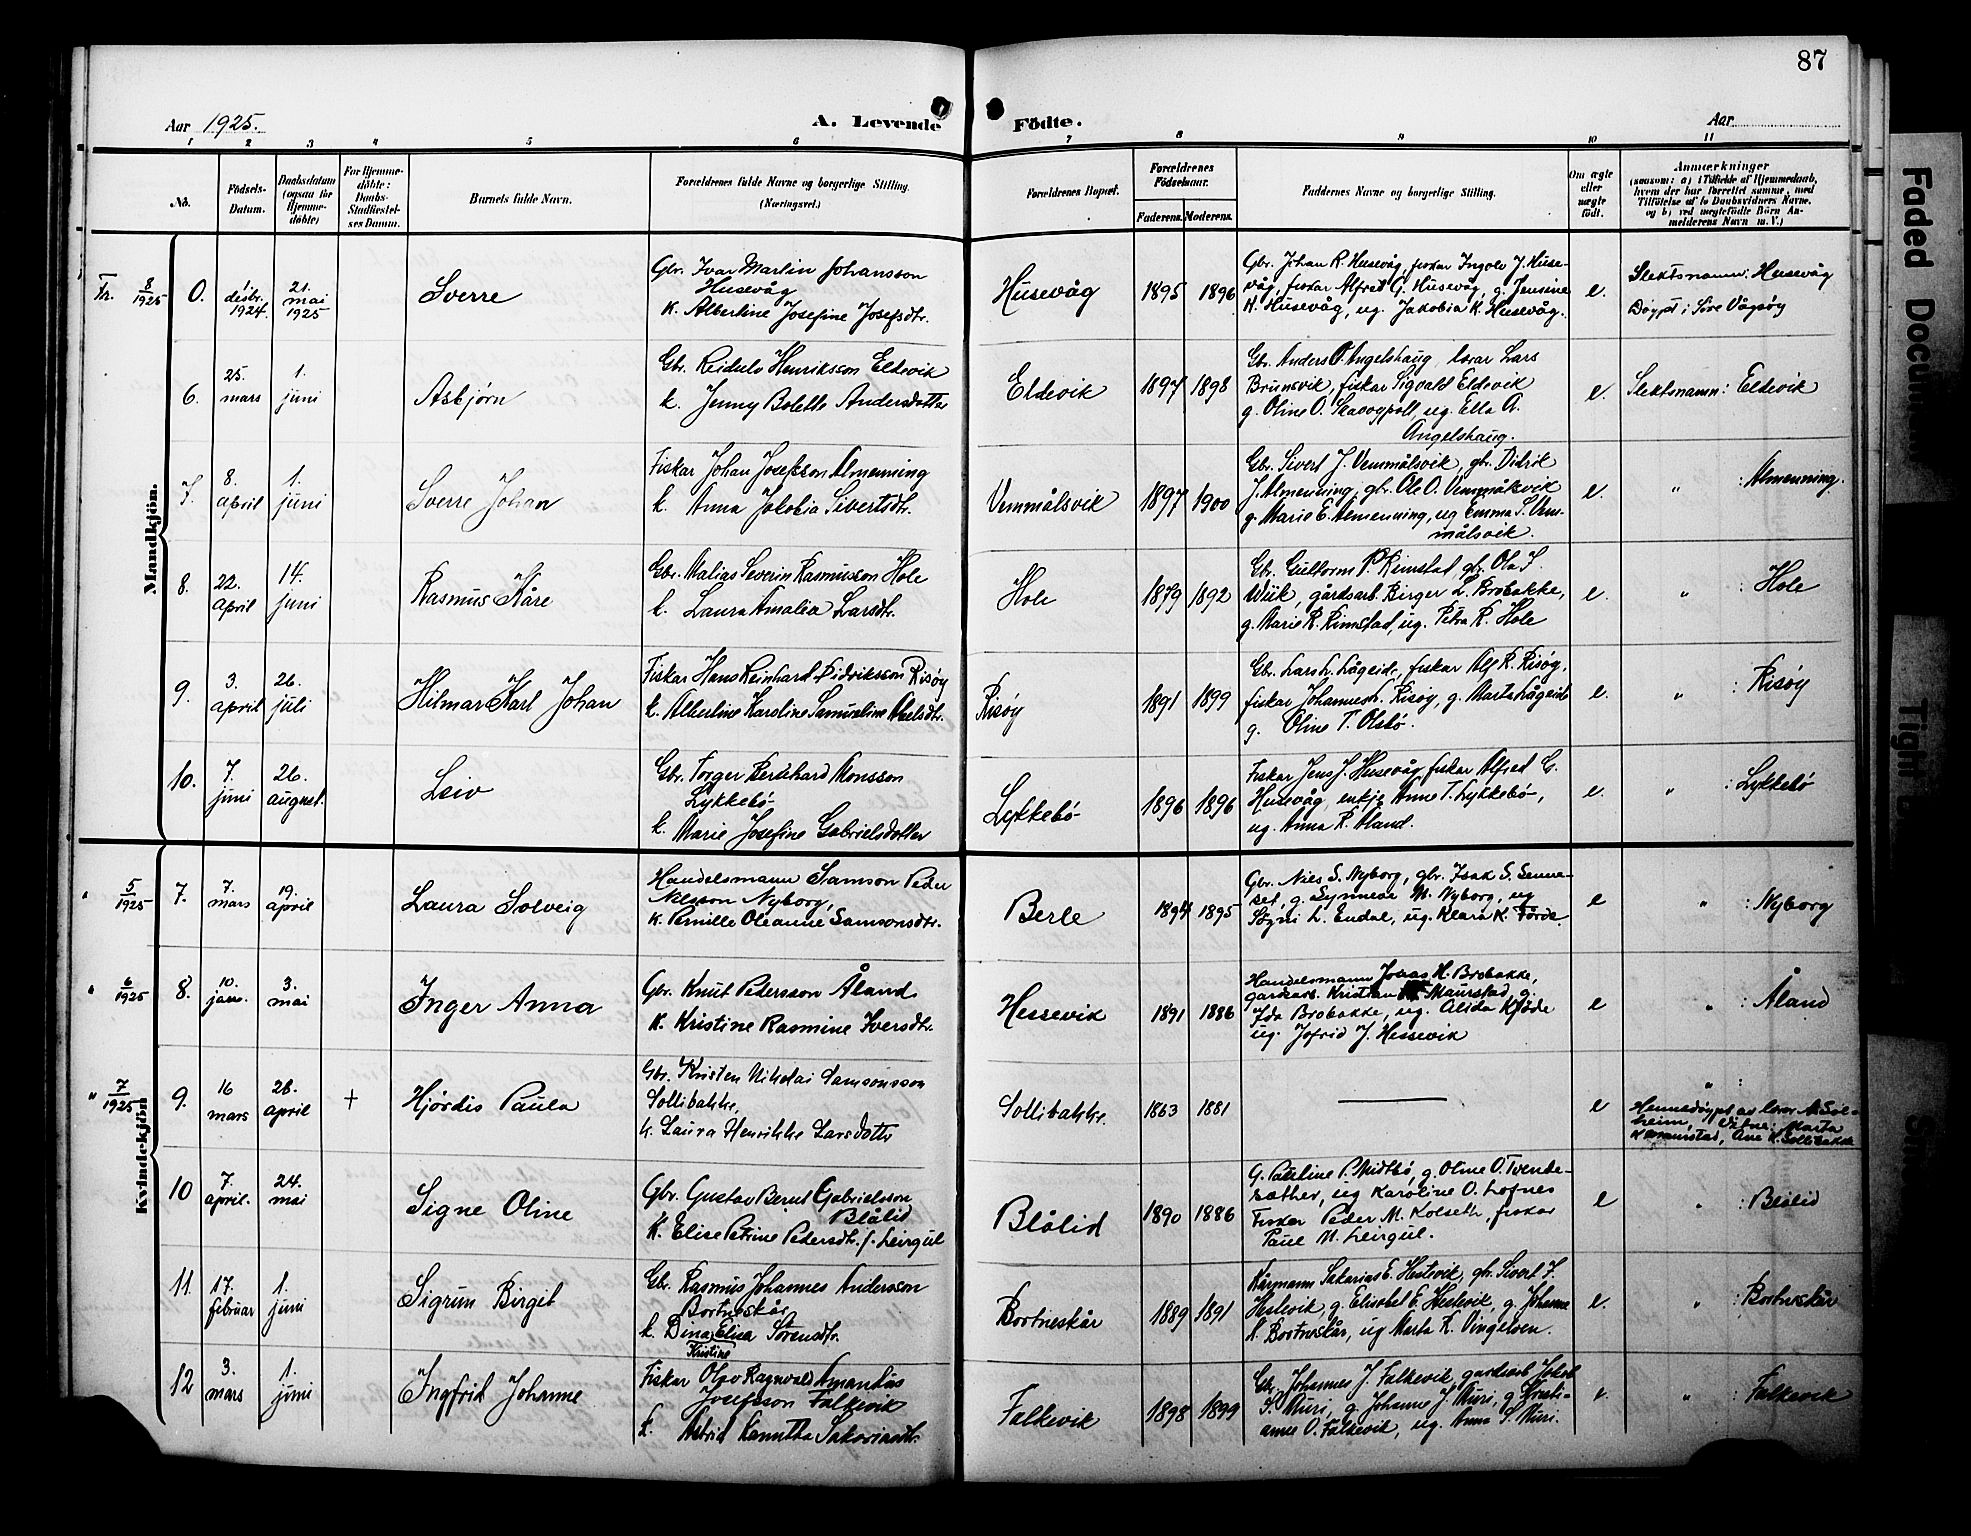 87
Aar 1925.
A. Levende Födte.
Aar
1 2 3 4 5 6 7 8 9 10 11
No.
Födsels-
Datum.
Daabsdatum
(ogsaa for
Hjemme-
döbte)
For Hjemme-
döbte:
Daabs-
Stadfæstel-
ses Datum.
Barnets fulde Navn.
Forældrenes fulde Navne og borgerlige Stilling.
(Næringsvei.)
Forældrenes Bopæl.
Forældrenes
Födselsaar.
Faderens. Moderens.
Faddernes Navne og borgerlige Stilling.
Om ægte
eller
uægte
født.
Anmærkninger
(saasom: a) i Tilfælde af Hjemmedaab,
hvem der har forrettet samme, med
Tilföielse af to Daabsvidners Navne,
og b) ved uægtefödte Börn An-
melderens Navn m. V.)
Mandkjön.
Fr. 8/1925
0.
1
desbr.
1924.
21.
mai
1925
Sverre
Gbr. Ivar Martin Johansson
Husevåg
k. Albertine Josefine Josefsdtr.
Husevåg
1895 1896
Gbr. Johan R. Husevåg, fiskar Ingolv J. Huse-
våg, fiskar Alfred G. Husevåg, g. Jensine
H. Husevåg, ug. Jakobia K. Husevåg.
e.
Slektsnamn: Husevåg
Döypt i Söre Vågsöy
6.
25.
mars
1.
juni
Asbjørn
Gbr. Reidulv Henriksson Eldevik
k. Jenny Bolette Andersdotter
Eldevik
1897 1898
Gbr. Anders O. Angelshaug, lærar Lars
Brunsvik, fiskar Sigvald Eldevik
g. Oline O. Skavøypoll, ug. Ella A.
Angelshaug.
e.
Slektsnamn: Eldevik
7.
8.
april
1.
juni
Sverre Johan
Fiskar Johan Josefsson Almenning
k. Anna Jakobia Sivertsdtr.
Vemmålsvik
1897 1900
Gbr. Sivert J. Vemmålsvik, gbr. Didrik
J. Almenning, gbr. Ole O. Vemmålsvik
g. Marie E. Almenning, ug Emma S. Vem-
målsvik.
e.
" Almenning.
8.
22.
april
14.
juni
Rasmus Kåre
Gbr. Matias Severin Rasmusson Hole
k. Laura Amalia Larsdtr.
Hole
1879 1892
Gbr. Guttorm P. Rimstad, gbr. Ola I.
Wiik, gårdsarb. Birger L. Brobakke,
g. Marie R. Rimstad, ug. Petra R. Hole
e.
" : Hole
9.
3.
april
26.
juli
Hilmar Karl Johan
Fiskar Hans Reinhard Didriksson Risøy
k. Albertine Karoline Samueline Akselsdtr.
Risøy
1891 1899
Gbr. Lars L. Lågeide, fiskar Alf R. Risøy,
fiskar Johannes L. Risøy, g. Marta Lågeide
g. Oline T. Olsbø.
e.
" : Risøy
10.
7.
juni
26.
august.
Leiv
Gbr. Torger Bernhard Monsson
Lykkebø
k. Marie Josefine Gabrielsdotter
Lykkebø
1896 1896
Fiskar Jens J. Husevåg, fiskar Alfred G.
Husevåg, enkje Anne T. Lykkebø,
ug. Anna R. Aland.
e.
" : Lykkebø
Kvindekjön
" 5/1925
7.
7.
mars
19.
april
Laura Solveig
Handelsmann Samson Peder
Nilsson Nyborg,
k. Pernille Oleanne Samsonsdtr.
Berle
1894 1895
Gbr. Nils S. Nyborg, gbr. Isak S. Senne-
set, g. Synneve M. Nyborg, ug
Søgni L. Endal, ug. Klara K. Førde.
e
" : Nyborg
" 6/1925
8.
10.
jan.
3.
mai
Inger Anna
Gbr. Knut Pedersson Åland
k. Kristine Rasmine Iversdtr.
Hessevik
1891 1886
Handelsmann Jonas H. Brobakke,
gardsarb. Kristian Maurstad, g.
Ida Brobakke, ug. Alida Kjøde
ug. Jofrid J. Hessevik
e
" : Åland
" 7/1925
9.
16
mars
28.
april
+
Hjørdis Paula
Gbr. Kristen Nikolai Samsonsson
Sollibakke,
k. Laura Henrikke Larsdottr
Sollibakke.
1863 1881
—
e
" :
Hemedøypt av lærar A. Sol-
heim, Vitne: Marta
Maurstad, Ane K. Sollibakke
10
7.
april.
24.
mai
Signe Oline
Gbr. Gustav Bernt Gabrielsson
Blålid
k. Elise Petrine Pedersdtr. f. Leirgul
Blålid
1890 1886
G. Pauline P. Midtbø, g. Oline O. Tvende-
sæther, ug Karoline O. Lofnes
Fiskar Peder M. Kolseth, fiskar
Paul M. Leirgul.
e
" : Blålid
11.
17.
februar
1.
juni
Sigrun Birgit
Gbr. Rasmus Johannes Andersson
Bortneskår
k. Dina Elisa Sørensdtr.
Kristine
Bortneskår
1889 1891
Kårmann Sakarias E. Hestevik, gbr. Sivert I.
Hestevik, g. Elisabet E. Hestevik, g. Johanne
A. Bortneskår, ug Marta R. Vingelven.
e.
" : Bortneskår
12
3.
mars
1.
juni
Ingfrid Johanne
Fiskar Olav Ragnvald Amandus
Josefsson Falkevik
k. Astrid Kamitha Sakariasdtr.
Falkevik
1898 1899
Gbr. Johannes J. Falkevik, gardsarb Jakob
S. Muri, g Johanne J. Muri, g. Kristi-
anne O. Falkevik, ug. Anna S. Muri.
e.
" : Falkevik
Faded Docum
Tight
S